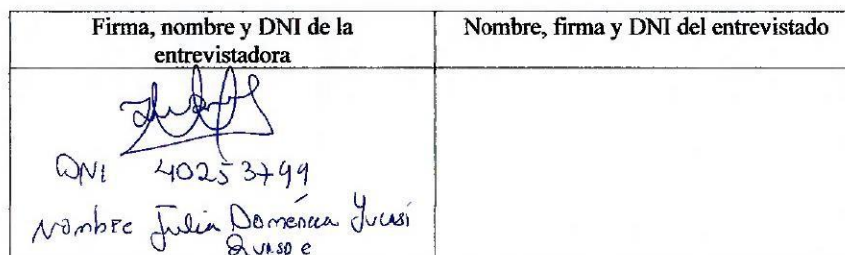 Firma, nombre y DNI de la
entrevistadora
Nombre, firma y DNI del entrevistado
DNI 40253799
Nombre Julia Doménica Yucasi
Quispe